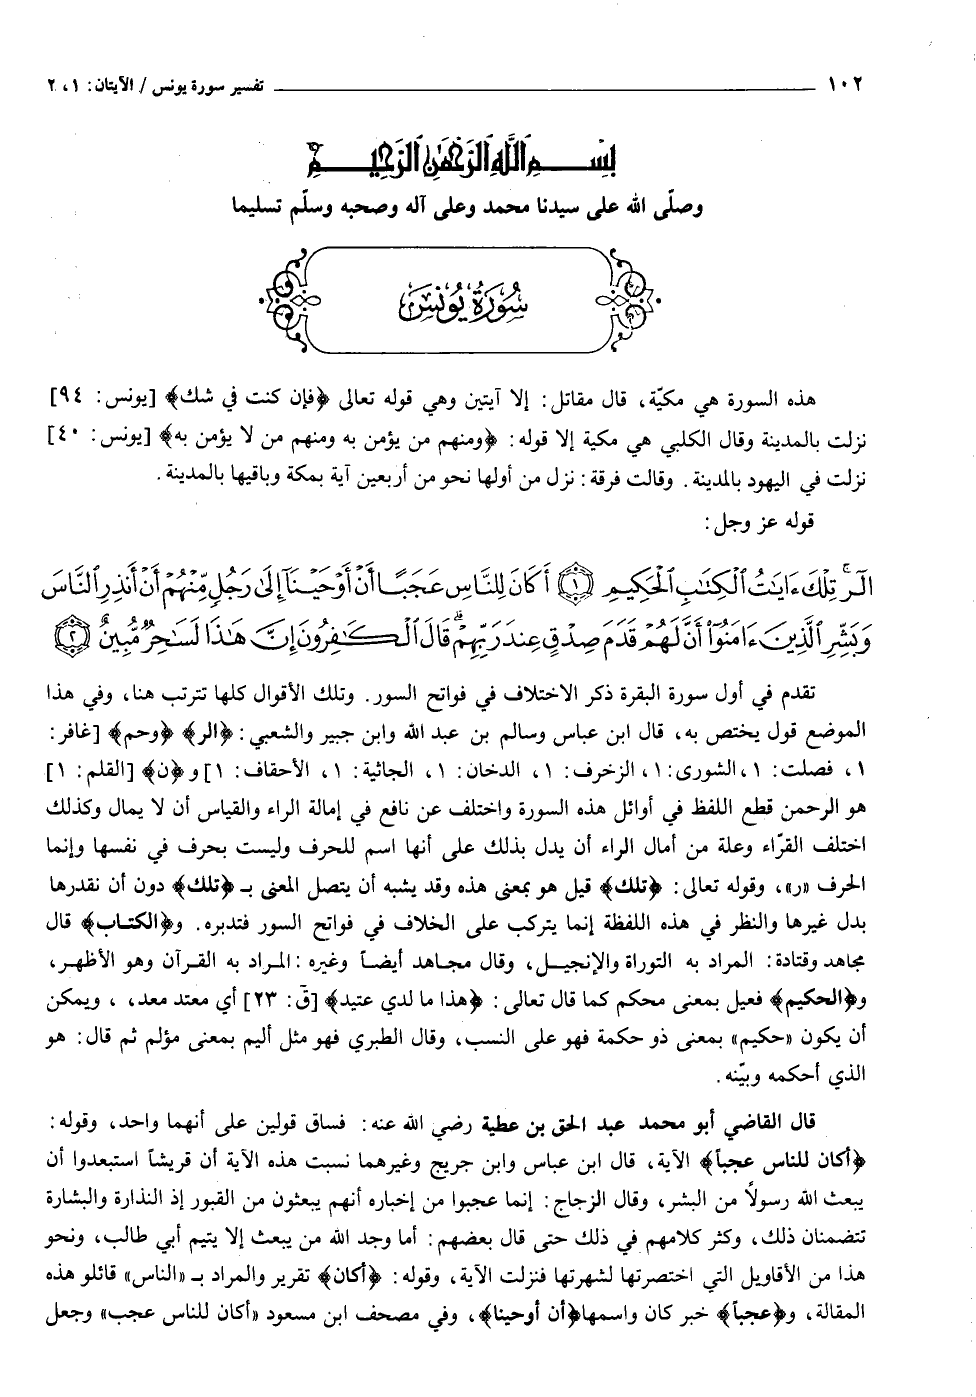 ١٠٢ تفسير سورة يونس / الآيتان: ١، ٢
بسم الله الرحمن الرحيم
وصلّى الله على سيدنا محمد وعلى آله وصحبه وسلّم تسليما
سُورَةُ يُونُسَ
هذه السورة هي مكيّة، قال مقاتل: إلا آيتين وهي قوله تعالى ﴿فإن كنت في شك﴾ [يونس: ٩٤]
نزلت بالمدينة وقال الكلبي هي مكية إلا قوله: ﴿ومنهم من يؤمن به ومنهم من لا يؤمن به﴾ [يونس: ٤٠]
نزلت في اليهود بالمدينة. وقالت فرقة: نزل من أولها نحو من أربعين آية بمكة وباقيها بالمدينة.
قوله عز وجل:
الٓرۚ تِلۡكَ ءَايَٰتُ ٱلۡكِتَٰبِ ٱلۡحَكِيمِ ١ أَكَانَ لِلنَّاسِ عَجَبًا أَنۡ أَوۡحَيۡنَآ إِلَىٰ رَجُلٖ مِّنۡهُمۡ أَنۡ أَنذِرِ ٱلنَّاسَ
وَبَشِّرِ ٱلَّذِينَ ءَامَنُوٓاْ أَنَّ لَهُمۡ قَدَمَ صِدۡقٍ عِندَ رَبِّهِمۡۗ قَالَ ٱلۡكَٰفِرُونَ إِنَّ هَٰذَا لَسَٰحِرٞ مُّبِينٌ ٢
تقدم في أول سورة البقرة ذكر الاختلاف في فواتح السور. وتلك الأقوال كلها تترتب هنا، وفي هذا
الموضع قول يختص به، قال ابن عباس وسالم بن عبد الله وابن جبير والشعبي: ﴿الر﴾ ﴿وحم﴾ [غافر:
١، فصلت: ١، الشورى: ١، الزخرف: ١، الدخان: ١، الجاثية: ١، الأحقاف: ١] و﴿ن﴾ [القلم: ١]
هو الرحمن قطع اللفظ في أوائل هذه السورة واختلف عن نافع في إمالة الراء والقياس أن لا يمال وكذلك
اختلف القرّاء وعلة من أمال الراء أن يدل بذلك على أنها اسم للحرف وليست بحرف في نفسها وإنما
الحرف «ر»، وقوله تعالى: ﴿تلك﴾ قيل هو بمعنى هذه وقد يشبه أن يتصل المعنى بـ ﴿تلك﴾ دون أن نقدرها
بدل غيرها والنظر في هذه اللفظة إنما يتركب على الخلاف في فواتح السور فتدبره. و﴿الكتاب﴾ قال
مجاهد وقتادة: المراد به التوراة والإنجيل، وقال مجاهد أيضاً وغيره: المراد به القرآن وهو الأظهر،
و﴿الحكيم﴾ فعيل بمعنى محكم كما قال تعالى: ﴿هذا ما لدي عتيد﴾ [قٓ: ٢٣] أي معتد معد، ، ويمكن
أن يكون «حكيم» بمعنى ذو حكمة فهو على النسب، وقال الطبري فهو مثل أليم بمعنى مؤلم ثم قال: هو
الذي أحكمه وبيّنه.
قال القاضي أبو محمد عبد الحق بن عطية رضي الله عنه: فساق قولين على أنهما واحد، وقوله:
﴿أكان للناس عجباً﴾ الآية، قال ابن عباس وابن جريج وغيرهما نسبت هذه الآية أن قريشاً استبعدوا أن
يبعث الله رسولاً من البشر، وقال الزجاج: إنما عجبوا من إخباره أنهم يبعثون من القبور إذ النذارة والبشارة
تتضمنان ذلك، وكثر كلامهم في ذلك حتى قال بعضهم: أما وجد الله من يبعث إلا يتيم أبي طالب، ونحو
هذا من الأقاويل التي اختصرتها لشهرتها فنزلت الآية، وقوله: ﴿أكان﴾ تقرير والمراد بـ «الناس» قائلو هذه
المقالة، و﴿عجباً﴾ خبر كان واسمها ﴿أن أوحينا﴾، وفي مصحف ابن مسعود «أكان للناس عجب» وجعل